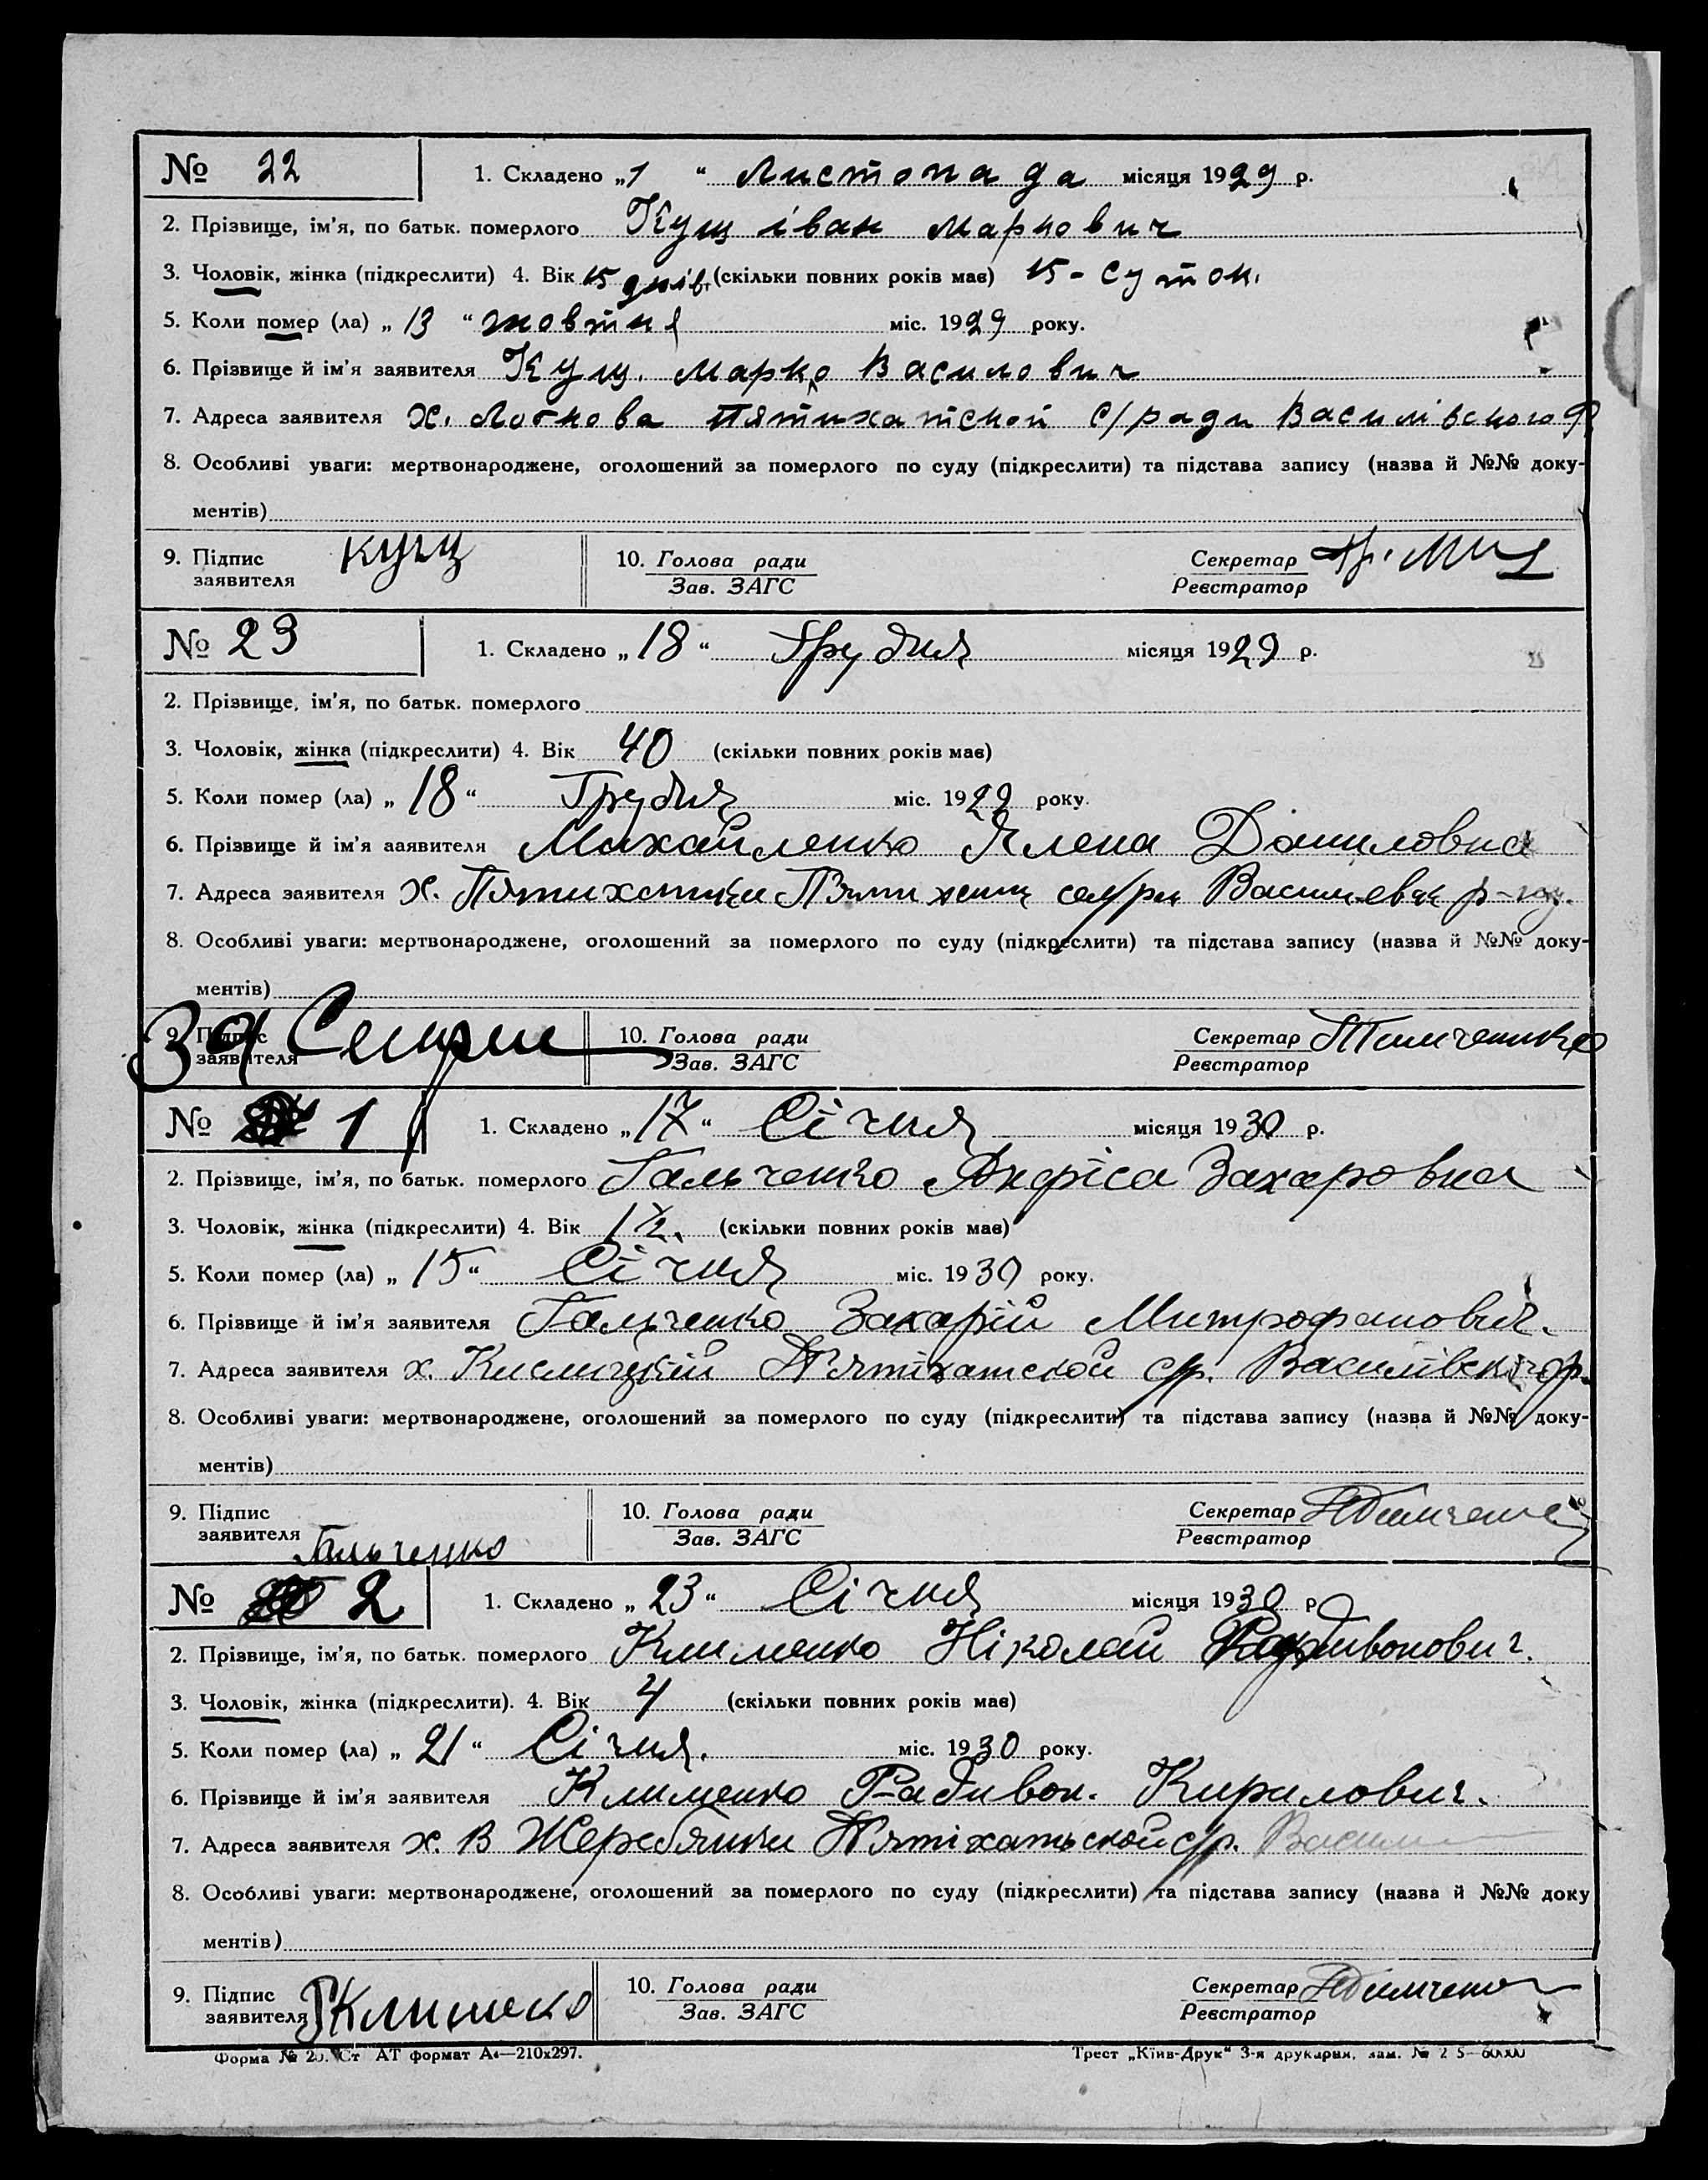 № 22 1. Складено „1“ Листопада місяця 1929 р.
2. Прізвище, ім'я, по батьк. померлого Кущ іван Маркович
3. Чоловік, жінка (підкреслити) 4. Вік 15 днів (скільки повних років має) 15 - суток.
5. Коли помер (ла) „13“ жовтня міс. 1929 року.
6. Прізвище й ім'я заявителя Кущ. Марко Василович
7. Адреса заявителя х. Лобкова Пятихатской с/ради Василівського р.
8. Особливі уваги: мертвонароджене, оголошений за померлого по суду (підкреслити) та підстава запису (назва й №№ доку-
ментів)
9. Підпис заявителя Кущ 10. Голова ради Зав. ЗАГС Секретар Реєстратор
№ 23 1. Складено „18“ Грудня місяця 1929 р.
2. Прізвище, ім'я, по батьк. померлого
3. Чоловік, жінка (підкреслити) 4. Вік 40 (скільки повних років має)
5. Коли помер (ла) „18“ Грудня міс. 1929 року.
6. Прізвище й ім'я заявителя Михайленко Ялена Даниловна
7. Адреса заявителя х. Пятихатки
8. Особливі уваги: мертвонароджене, оголошений за померлого по суду (підкреслити) та підстава запису (назва й №№ доку-
ментів)
9. Підпис заявителя За 10. Голова ради Зав. ЗАГС Секретар Реєстратор
№ 1 1. Складено „17“ Січня місяця 1930 р.
2. Прізвище, ім'я, по батьк. померлого Гальченко Анфіса Захаровна
3. Чоловік, жінка (підкреслити) 4. Вік 1½. (скільки повних років має)
5. Коли помер (ла) „15“ Січня міс. 1930 року.
6. Прізвище й ім'я заявителя Гальченко Захарій Митрофанович.
7. Адреса заявителя х. Кислицкій Пятіхатской с/р. Василівского р.
8. Особливі уваги: мертвонароджене, оголошений за померлого по суду (підкреслити) та підстава запису (назва й №№ доку-
ментів)
9. Підпис заявителя Гальченко 10. Голова ради Зав. ЗАГС Секретар Реєстратор
№ 2 1. Складено „23“ Січня місяця 1930 р
2. Прізвище, ім'я, по батьк. померлого Клименко Ніколай Радивонович.
3. Чоловік, жінка (підкреслити). 4. Вік 4 (скільки повних років має)
5. Коли помер (ла) „21“ Січня. міс. 1930 року.
6. Прізвище й ім'я заявителя Клименко Радивон. Кирилович.
7. Адреса заявителя х. В Жеребянки Пятіхатьской с/р. Васил
8. Особливі уваги: мертвонароджене, оголошений за померлого по суду (підкреслити) та підстава запису (назва й №№ доку
ментів)
9. Підпис заявителя РКлимеко 10. Голова ради Зав. ЗАГС Секретар Реєстратор
Форма № 20. Ст АТ формат А4—210х297. Трест „Київ-Друк“ 3-я друкарня, зам. №